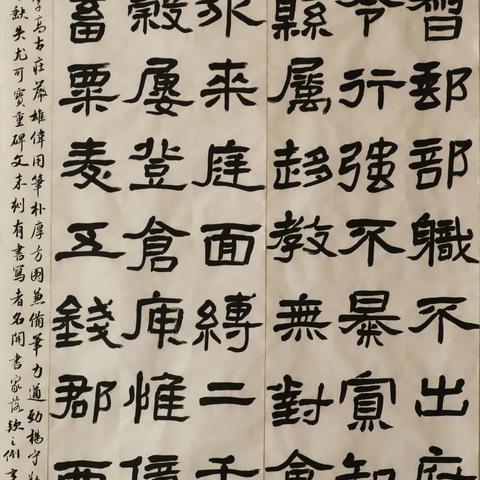 督郵部職不出府
令行強不暴寡知
縣屬趍教無對會
外來庭面縛二千
穀屢登倉庾惟億
畜粟麦五錢郡西
高古莊嚴雄偉用筆朴厚方圓兼備筆力遒勁楊守
缺失尤可寶重碑文末刻有書寫者名開書家落款之例